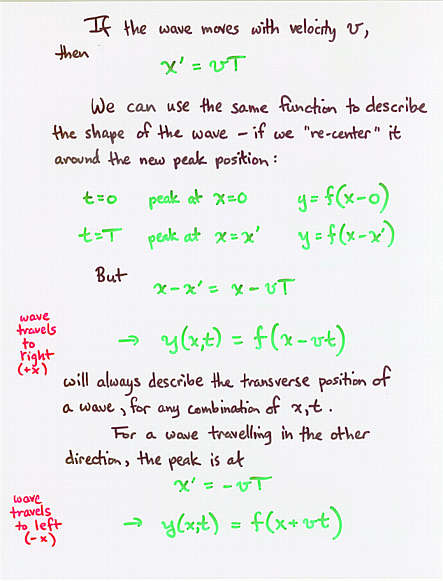 If the wave moves with velocity v,
then
x' = vT
We can use the same function to describe
the shape of the wave – if we "re-center" it
around the new peak position:
t=0 peak at x=0 y = f(x-0)
t=T peak at x=x' y = f(x-x')
But
x-x' = x-vT
wave
travels
to
right
(+x)
→ y(x,t) = f(x-vt)
will always describe the transverse position of
a wave, for any combination of x,t.
For a wave travelling in the other
direction, the peak is at
x' = -vT
wave
travels
to left
(-x)
→ y(x,t) = f(x+vt)